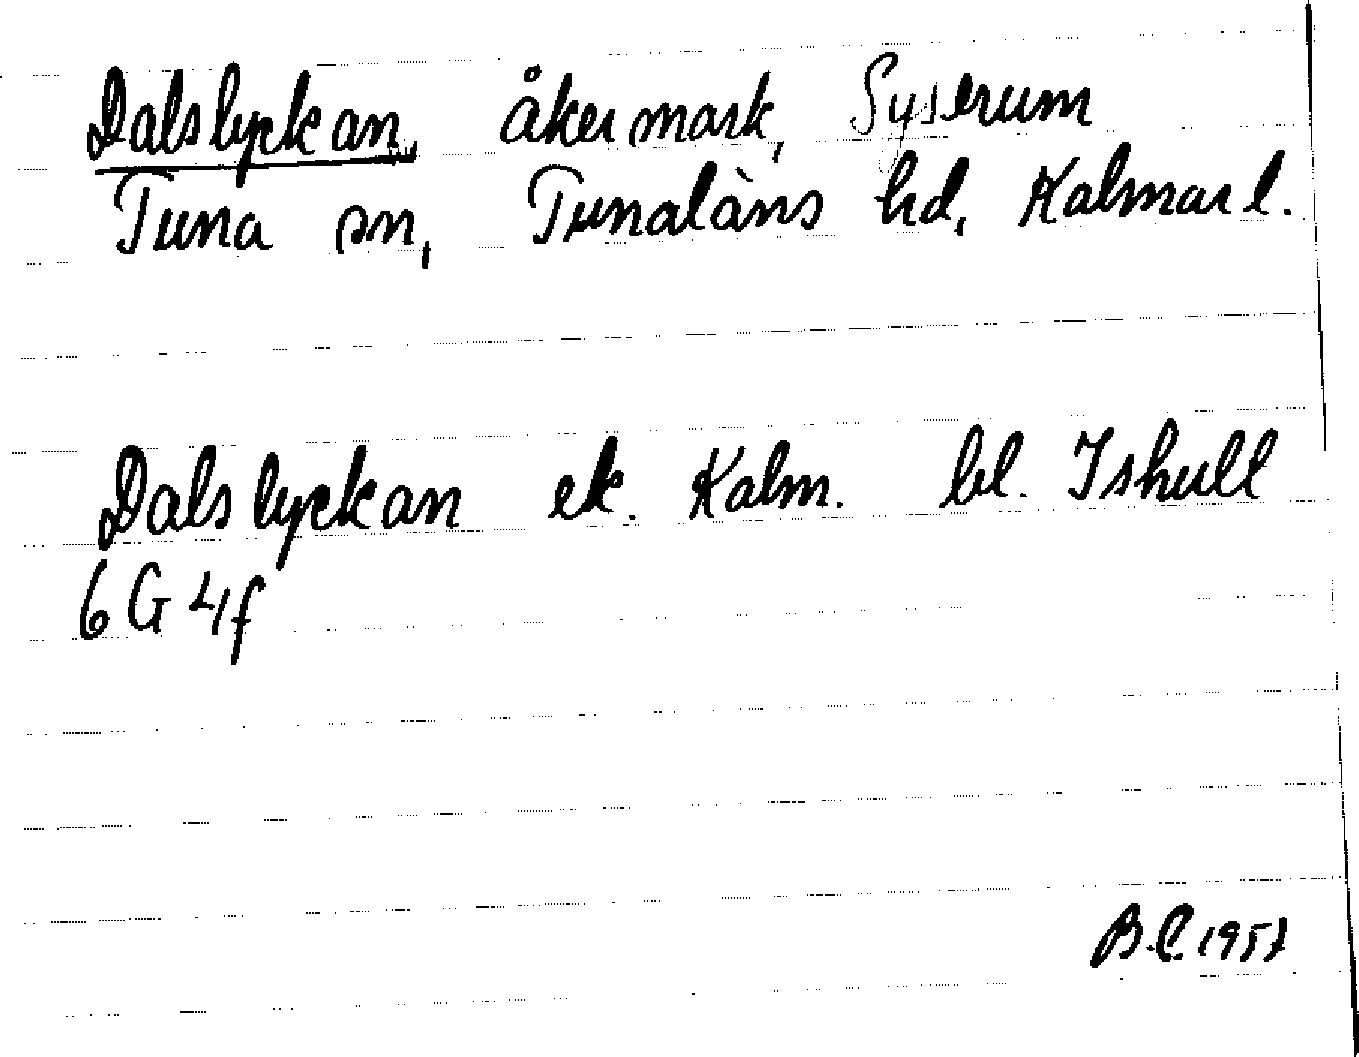 Dalslyckan, åkermark, Syserum
Tuna sn, Tunaläns hd, Kalmar l.
Dalslyckan ek. Kalm. bl. Ishult
6G4f
B.C. 1957